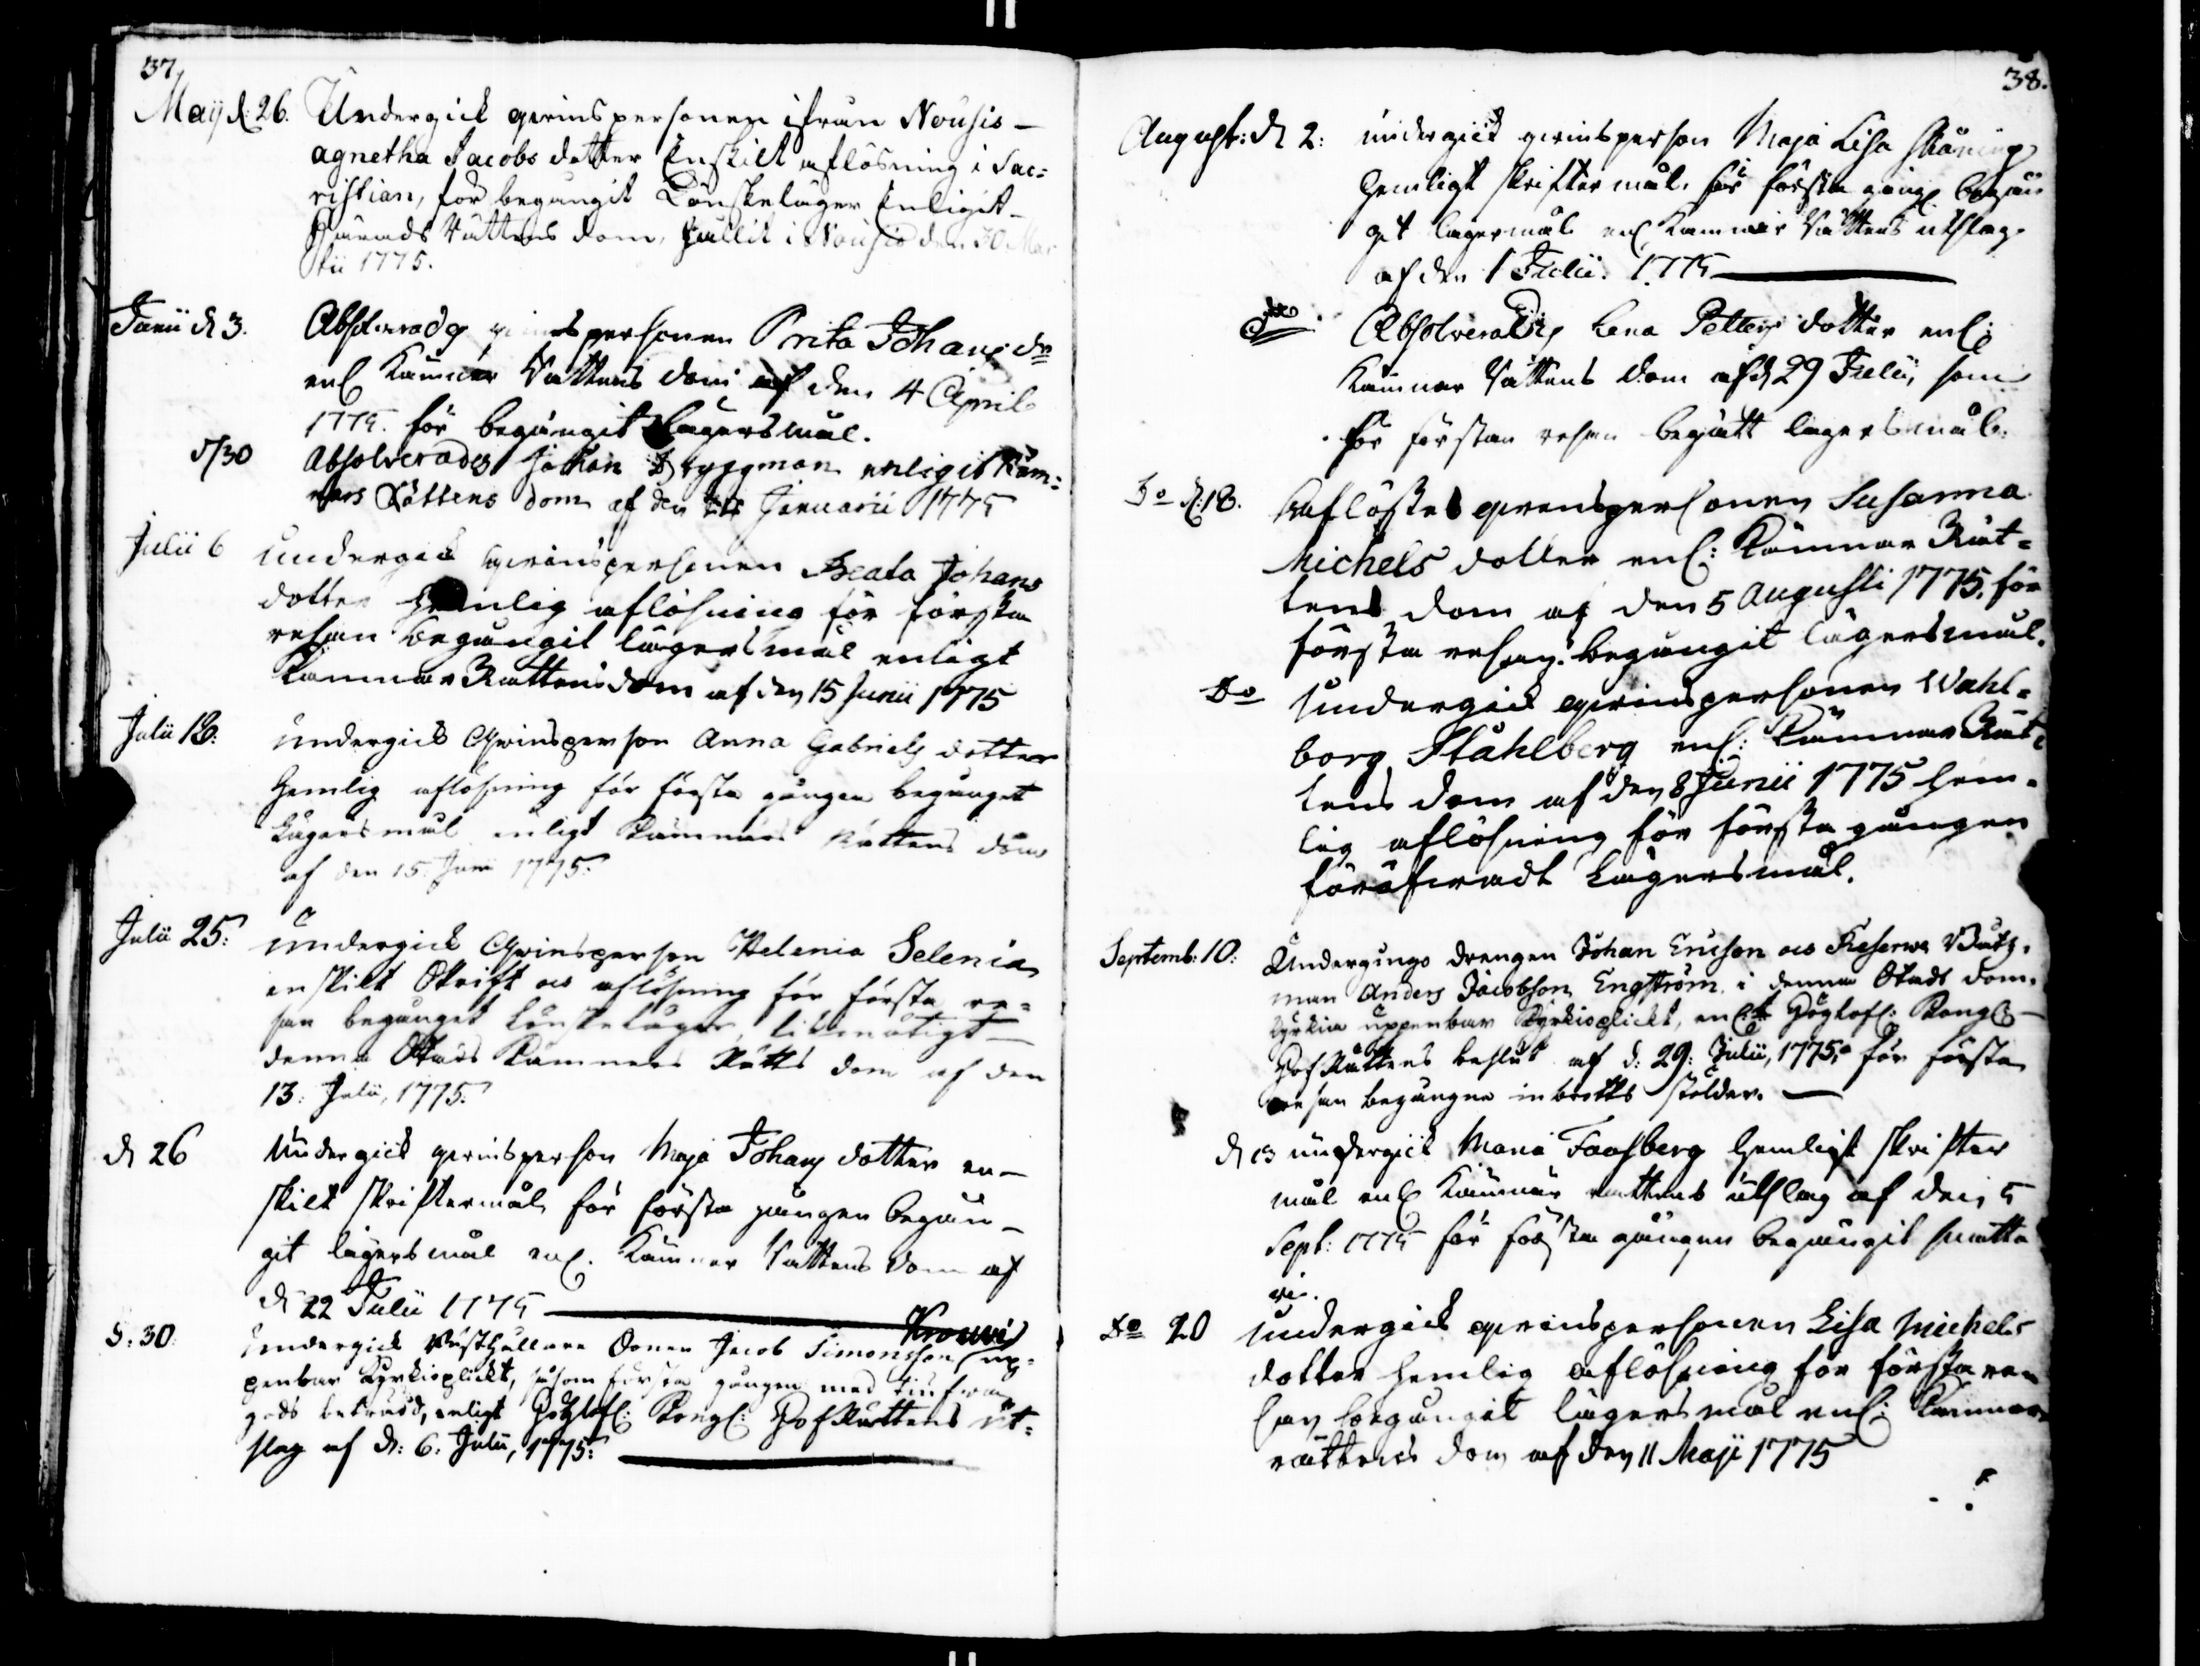 37.
Maij d: 26. Undergick qvinspersonen ifrån Nousis
agnetha Jacobs dotter Enskilt aflösning i Sac=
ristian, för begångit Lönskeläger Enligit
Härads Rättens dom, fällit i Nousis den 30 Mar
tii 1775.
Junii d 3. Absolverades qvinspersonen Brita Johans dr
enl Kämner Rättens dom af den 4 April
1775. för begångit Lägersmål.
d/30 Absolverades Johan Bryggman enligit Käm=
ners Rättens dom af den Januarii 1775
Julii 6 undergick qvinspersonen Beata Johans
dotter hemlig aflösning för första
resan begångit lägersmål enligt
Kämnar Rättens dom af den 15 Junii 1775
Julii 18: undergick Qvinsperson Anna Gabriels dotter
hemlig aflösning för första gången begånget
Lägersmål enligt Kämnärs Rättens dom
af den 15. Juni 1775.
Julii 25: undergick Qvinsperson Helenia Selenia
enskilt Skrift os aflösning för första re=
san begånget Lönskeläger, likmätigt
denna Stads Kämners Rätts dom af den
13: Julii, 1775.
d 26 Undergick qvinsperson Maja Johans dotter en-
skilt skriftermål för första gången begån-
git lägersmål enl. Kämner Rättens dom af
d 22 Julii 1775
d. 30. undergick Rusthållare Sonen Jacob Simonsson Krouvi up=
penbar Kyrkioplickt, såsom första gången med tiufva
gods beträdd, enligt Högtlofl: Kongl: HofRättens ut=
slag af d: 6. Julii, 1775:
38.
August: d 2: undergick qvinsperson Maja Lisa
hemligt skriftermål för första gång begån
git lagersmål enl Kämner Rättens utslag
af den 1 Julii. 1775
dito Absolverades Lena Petters dotter enl:
Kämner Rättens dom af d 29 Julii, som
för första resan begått lagersmål.
Do d: 18. Aflöstes qvinspersonen Susanna
Michels dotter enl: Kämnar Rät=
tens dom af den 5 Augusti 1775. för
första resan begångit lägersmål.
Do undergick qvinspersonen Wahl=
borg Ståhlberg enl: Kämnar Rät=
tens dom af den 8 Junii 1775 hem=
lig aflösning för första gången
föröfwadt Lägersmål.
Septemb: 10: Undergingo drengen Johan Ericson os Reserve Båtz=
man Anders Jacobson Engström i denna Stads Dom=
kyrkia uppenbar Kyrkioplickt, enl:t Högtlofl: Kongl
HofRättens beslut af d: 29: Julii, 1775, för första
resan begångne inbrotts stölder.
d 13 undergick Maria Faasberg hemligt skrifter
mål enl Kämnär rättens utslag af den 5
Sept: 1775 för första gången begångit snatte
ri.
Do 20 undergick qvinspersonen Lisa Michels
dotter hemlig aflösning för första re
san begångit lägersmål enl: Kämnar
rättens dom af den 11 Maji 1775